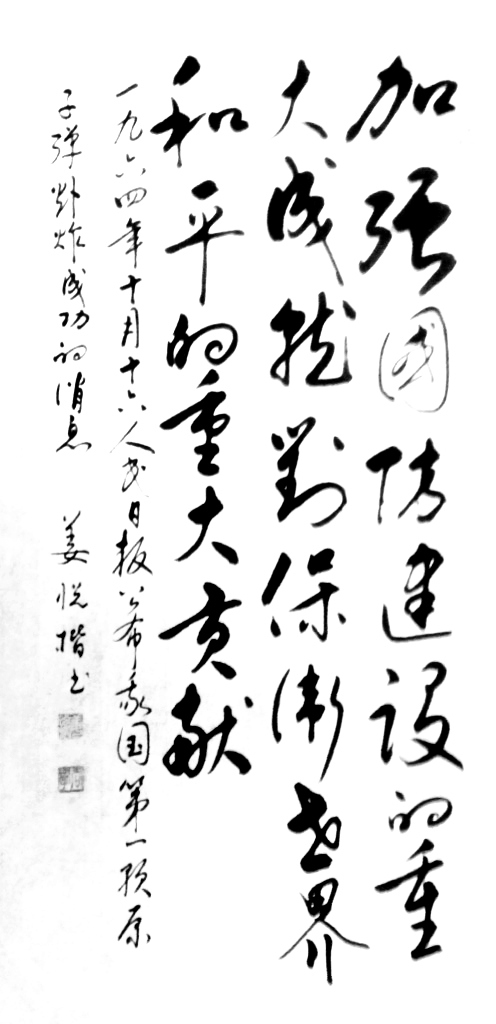 加强國防建設的重
大成就對保衛世界
和平的重大贡献
一九六四年十月十六人民日报公布我国第一颗原
子弹炸炸成功的消息 姜悦楷书